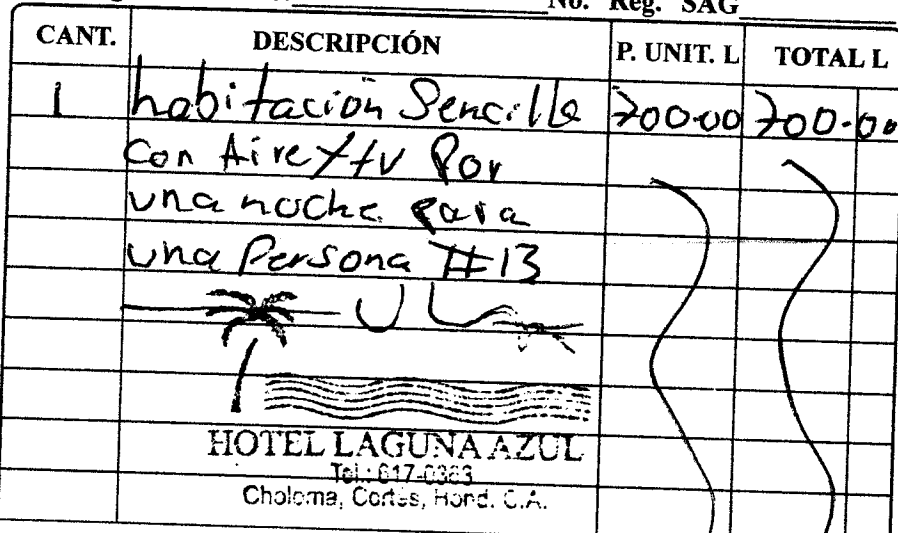 No. Reg. SAG
CANT. DESCRIPCIÓN P. UNIT. L TOTAL L
1 habitación Sencilla 700.00 700.00
Con Aire y tv Por
una noche para
una Persona #13
HOTEL LAGUNA AZUL
Tel.: 617-0383
Choloma, Cortés, Hond. C.A.